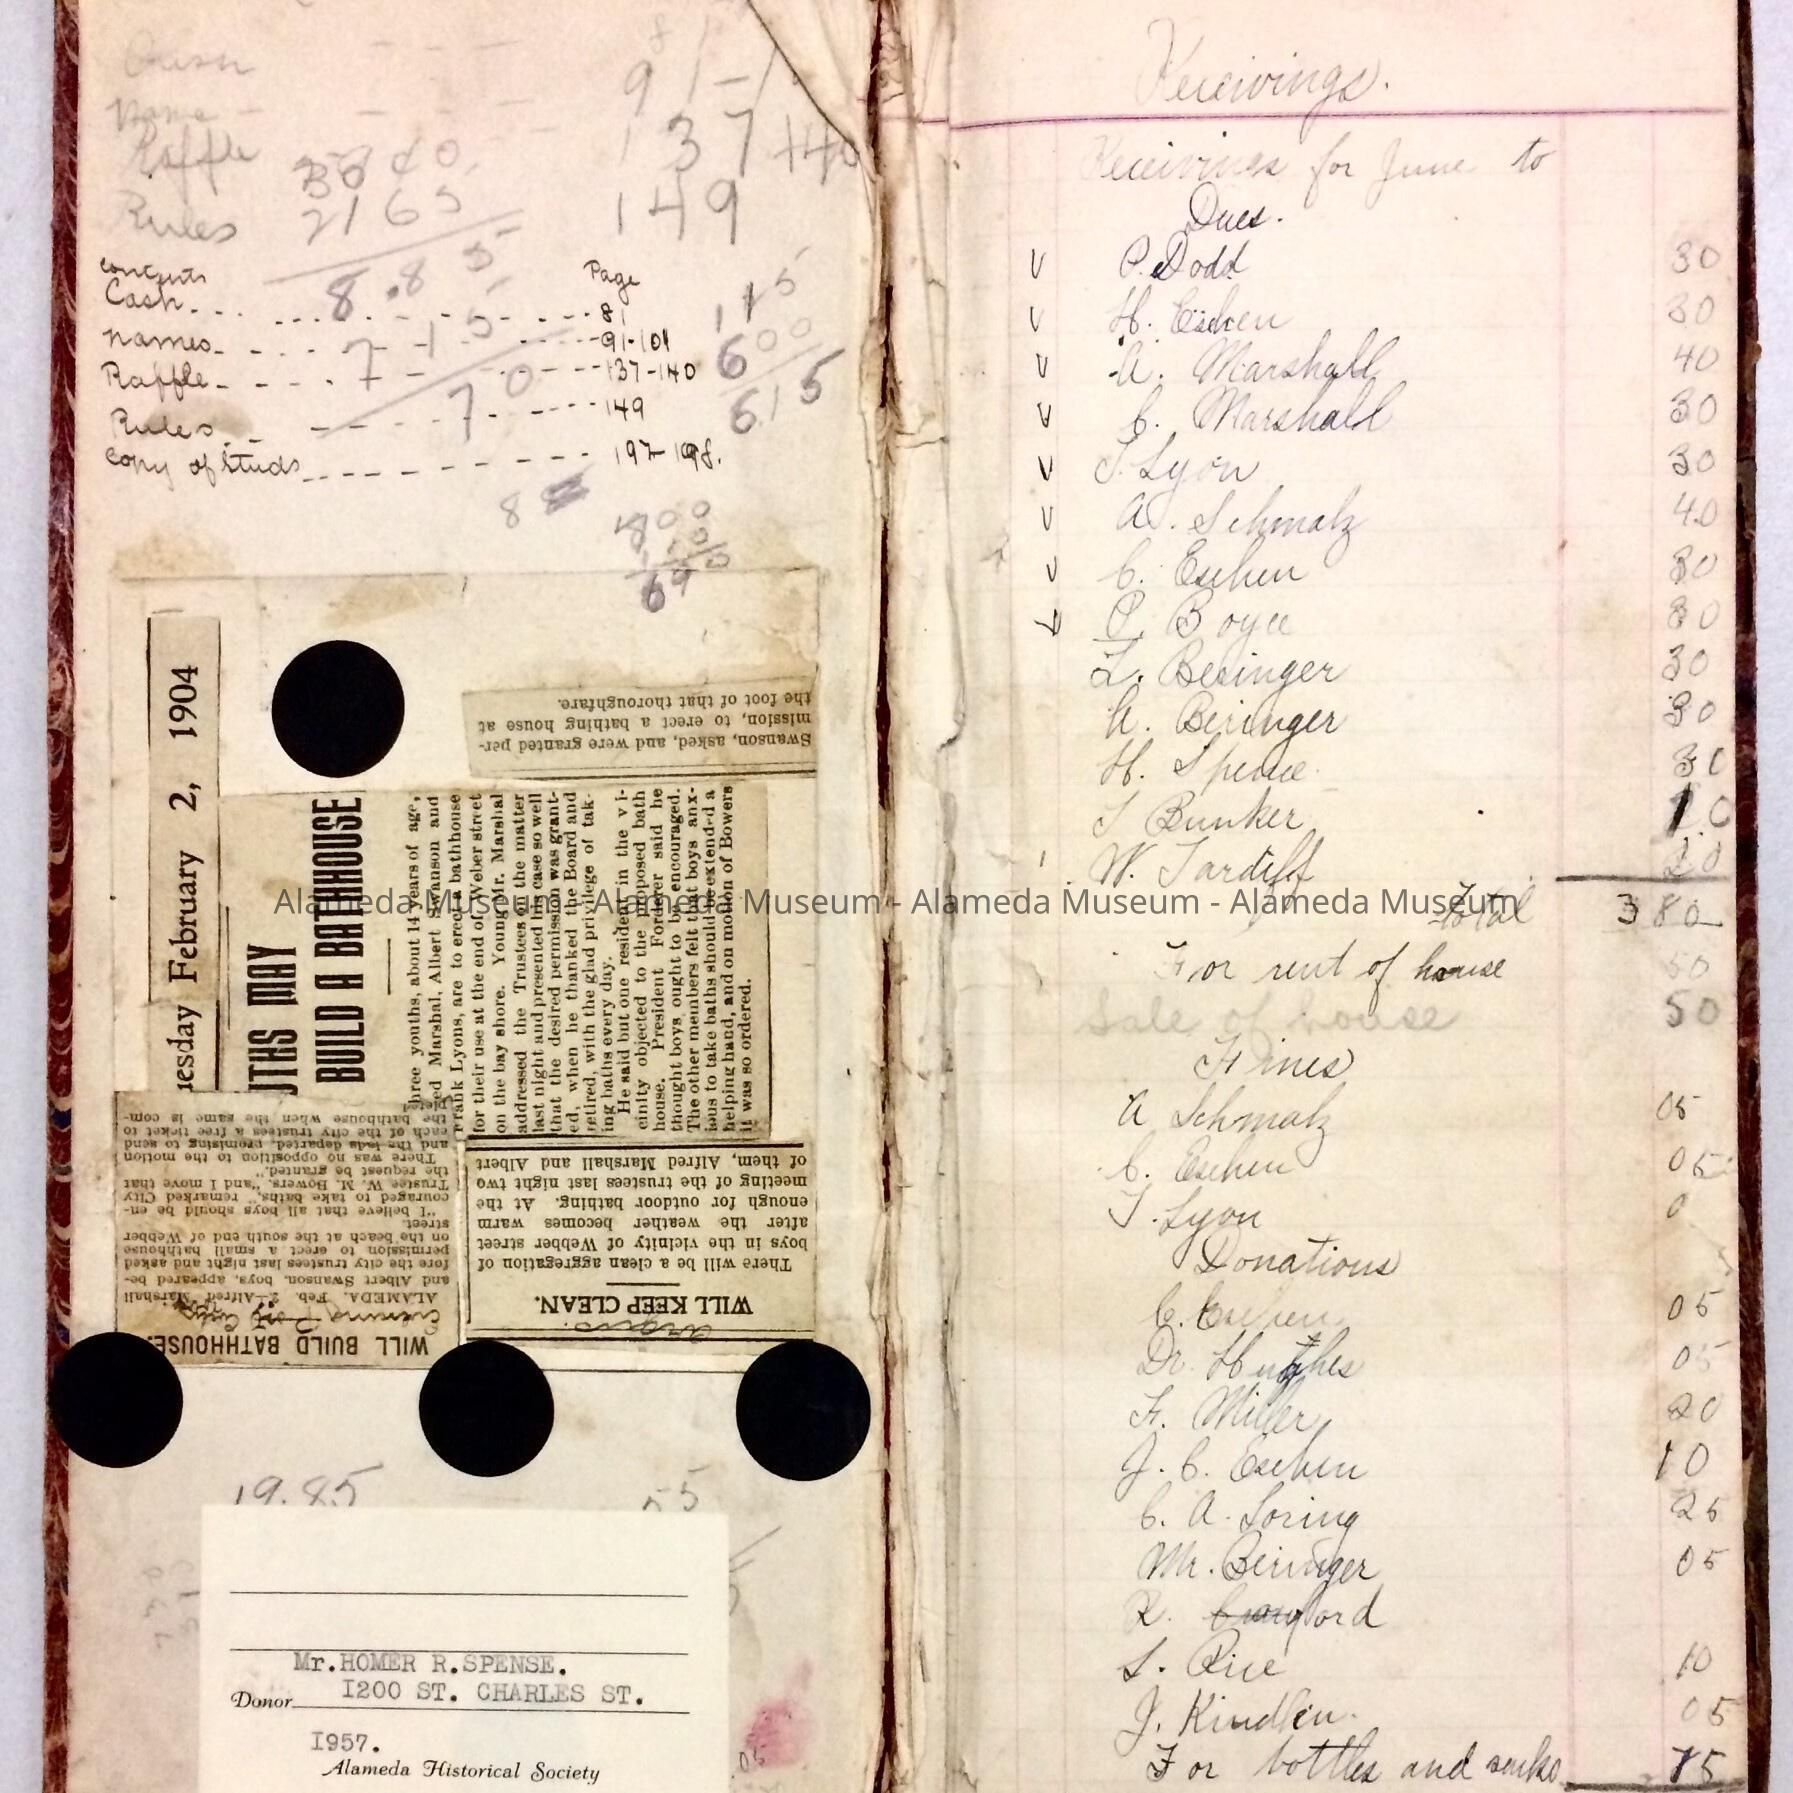 Cash
Name
Raffle
Rules
91-1
137 140
149
2165
8.85
contents Page
Cash 81
names 91-101
Raffle 137-140
Rules 149
Copy of Studs 197-198.
7 15
7 70
115
600
615
8
800
690
uesday February 2, 1904
UTHS MAY
BUILD A BATHHOUSE
hree youths, about 14 years of age,
ed Marshal, Albert Swanson and
rank Lyons, are to erect a bathhouse
for their use at the end of Weber street
on the bay shore. Young Mr. Marshal
addressed the Trustees on the matter
last night and presented his case so well
that the desired permission was grant-
ed, when he thanked the Board and
retired, with the glad privilege of tak-
ing baths every day.
He said but one resident in the vi-
cinity objected to the proposed bath
house. President Forderer said he
thought boys ought to be encouraged.
The other members felt that boys anx-
ious to take baths should be extended a
helping hand, and on motion of Bowers
it was so ordered.
WILL BUILD BATHHOUSE.
Evening Post
ALAMEDA, Feb. 2—Alfred Marshall
and Albert Swanson, boys, appeared be-
fore the city trustees last night and asked
permission to erect a small bathhouse
on the beach at the south end of Webber
street.
"I believe that all boys should be en-
couraged to take baths," remarked City
Trustee W. M. Bowers, "and I move that
the request be granted."
There was no opposition to the motion
and the lads departed, promising to send
each of the city trustees a free ticket to
the bathhouse when the same is com-
pleted
Argus.
WILL KEEP CLEAN.
There will be a clean aggregation of
boys in the vicinity of Webber street
after the weather becomes warm
enough for outdoor bathing. At the
meeting of the trustees last night two
of them, Alfred Marshall and Albert
Swanson, asked, and were granted per-
mission, to erect a bathing house at
the foot of that thoroughfare.
19.85 55
Mr.HOMER R.SPENSE.
Donor 1200 ST. CHARLES ST.
1957.
Alameda Historical Society
05
Receivings.
Receivings for June to
Dues.
P. Dodd 30
H. Eschen 30
A. Marshall 40
C. Marshall 30
F. Lyon 30
A. Schmalz 40
C. Eschen 30
P. Boyce 30
L. Beringer 30
A. Beringer 30
H. Spense 30
F Bunker 10
W. Tardiff 20
Total 3 80
For rent of house 50
Sale of house 50
Fines
A Schmalz 05
C. Eschen 05
F. Lyon 0
Donations
C. Eschen 05
Dr. Hughes 05
F. Miller 20
J. C. Eschen 10
C. A. Loring 25
Mr. Beringer 05
R. Crawford
S. Rice 10
J. Kindlen. 05
For bottles and sacks 75
Alameda Museum - Alameda Museum - Alameda Museum - Alameda Museum